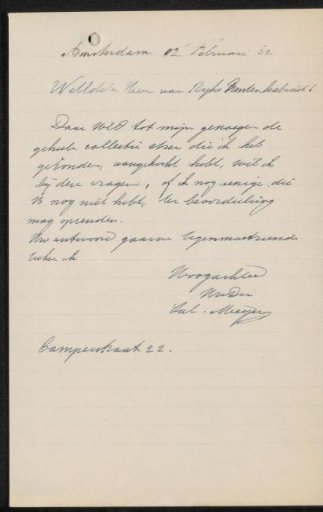 Amsterdam 12 Februari 52
Heer van Rijks Prentenkabinet
Daar tot mijn genoegen de
geheele collectie etsen die ik heb
gezonden, aangekocht hebt, wil ik
bij deze vragen, of ik nog eenige die
U nog niet hebt, ter beoordeeling
mag opzenden.
Uw antwoord gaarne tegemoetziende
teken ik
Hoogachtend
UwDw
Sal. Meijer
Camperstraat 22.